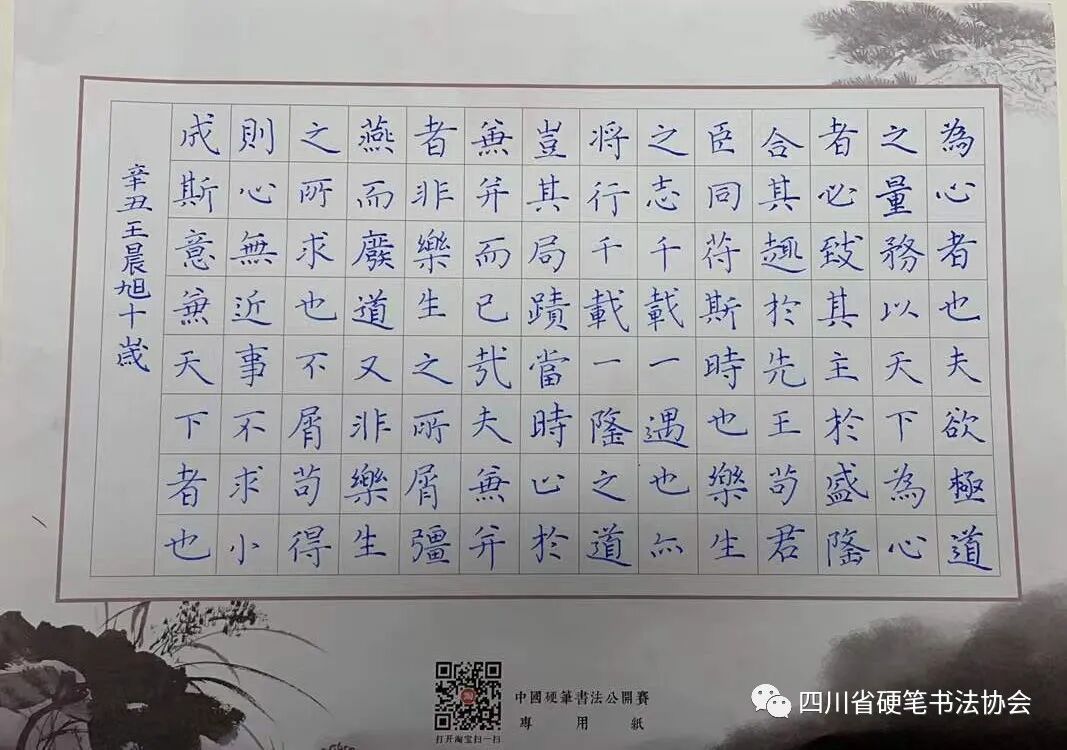 為心者也夫欲極道
之量務以天下為心
者必致其主於盛隆
合其趣於先王苟君
臣同符斯時也樂生
之志千載一遇也亦
将行千載一隆之道
豈其局蹟當時止於
兼并而已哉夫兼并
者非樂生之所屑彊
燕而廢道又非樂生
之所求也不屑苟得
則心無近事不求小
成斯意兼天下者也
辛丑王晨旭十歲
中國硬筆書法公開賽
專用紙
打开淘宝扫一扫
四川省硬笔书法协会